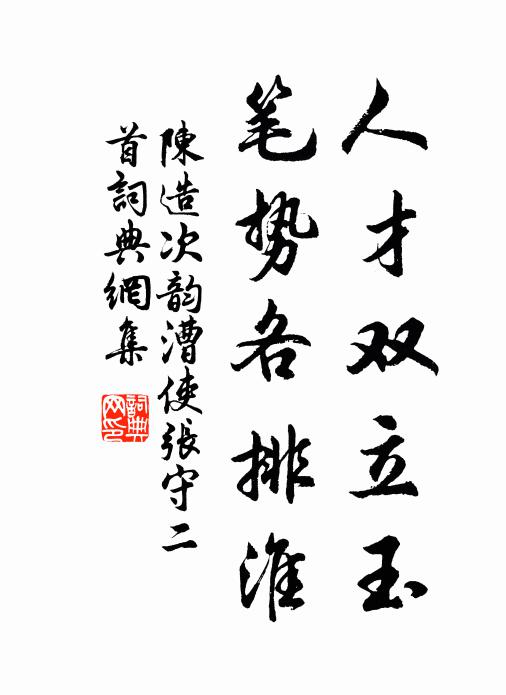 人才双立玉
笔势各排淮
陳造次韵漕使張守二
首詞典網集
詞典网印